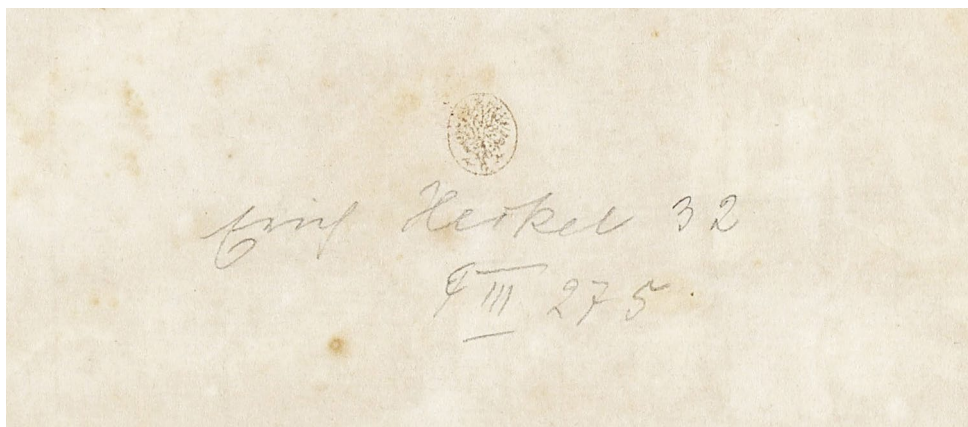 Erich Heckel 32
F III 275